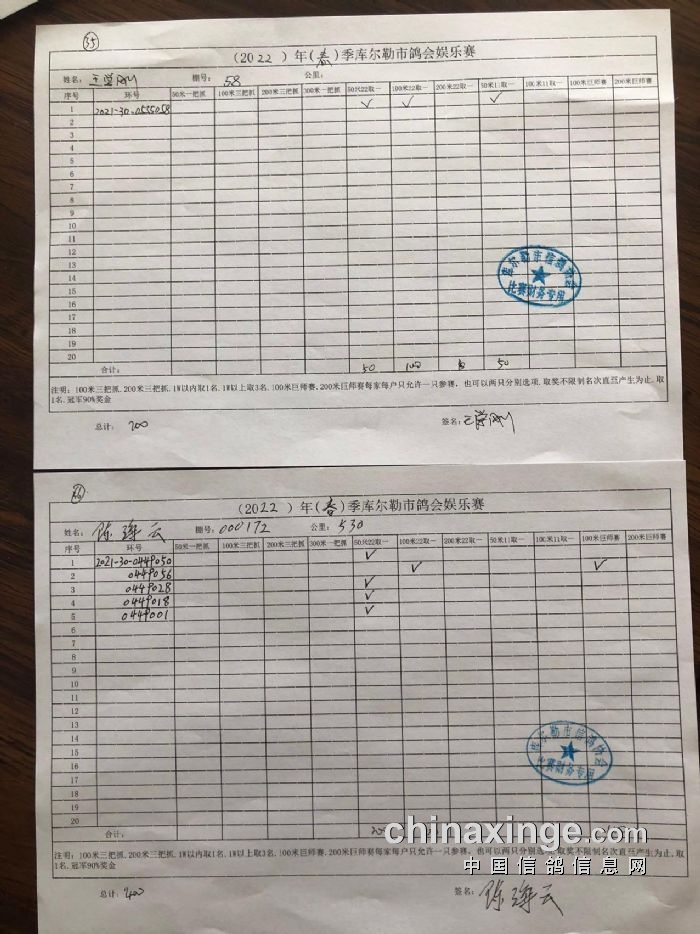 35
(2022)年(春)季库尔勒市鸽会娱乐赛
姓名: 王学刚 棚号: 58 公里:
序号 环号 50米一把抓 100米三把抓 200米三把抓 300米一把抓 50米22取一 100米22取一 200米22取一 50米11取一 100米11取一 100米巨师赛 200米巨师赛
1 2021-30-0535058 ✓ ✓ ✓
2
3
4
5
6
7
8
9
10
11
12
13
14
15
16
17
18
19
20
库尔勒市信鸽协会
比赛财务专用
合计: 50 100 50
注明: 100米三把抓. 200米三把抓. 1W以内取1名. 1W以上取3名. 100米巨师赛. 200米巨师赛每家每户只允许一只参赛, 也可以两只分别选项. 取奖不限制名次直至产生为止. 取
1名. 冠军90%奖金
总计: 200 签名: 王学刚
(2022)年(春)季库尔勒市鸽会娱乐赛
姓名: 陈连云 棚号: 000172 公里: 530
序号 环号 50米一把抓 100米三把抓 200米三把抓 300米一把抓 50米22取一 100米22取一 200米22取一 50米11取一 100米11取一 100米巨师赛 200米巨师赛
1 2021-30-0449050 ✓ ✓ ✓
2 0449056
3 0449028 ✓
4 0449018 ✓
5 0449001 ✓
6
7
8
9
10
11
12
13
14
15
16
17
18
19
20
库尔勒市信鸽协会
比赛财务专用
合计:
chinaxinge.com
注明: 100米三把抓. 200米三把抓. 1W以内取1名. 1W以上取3名. 100米巨师赛. 200米巨师赛每家每户只允许一只参赛, 也可以两只分别选项. 取奖不限制名次直至产生为止. 取
1名. 冠军90%奖金
中国信鸽信息网
总计: 400 签名: 陈连云